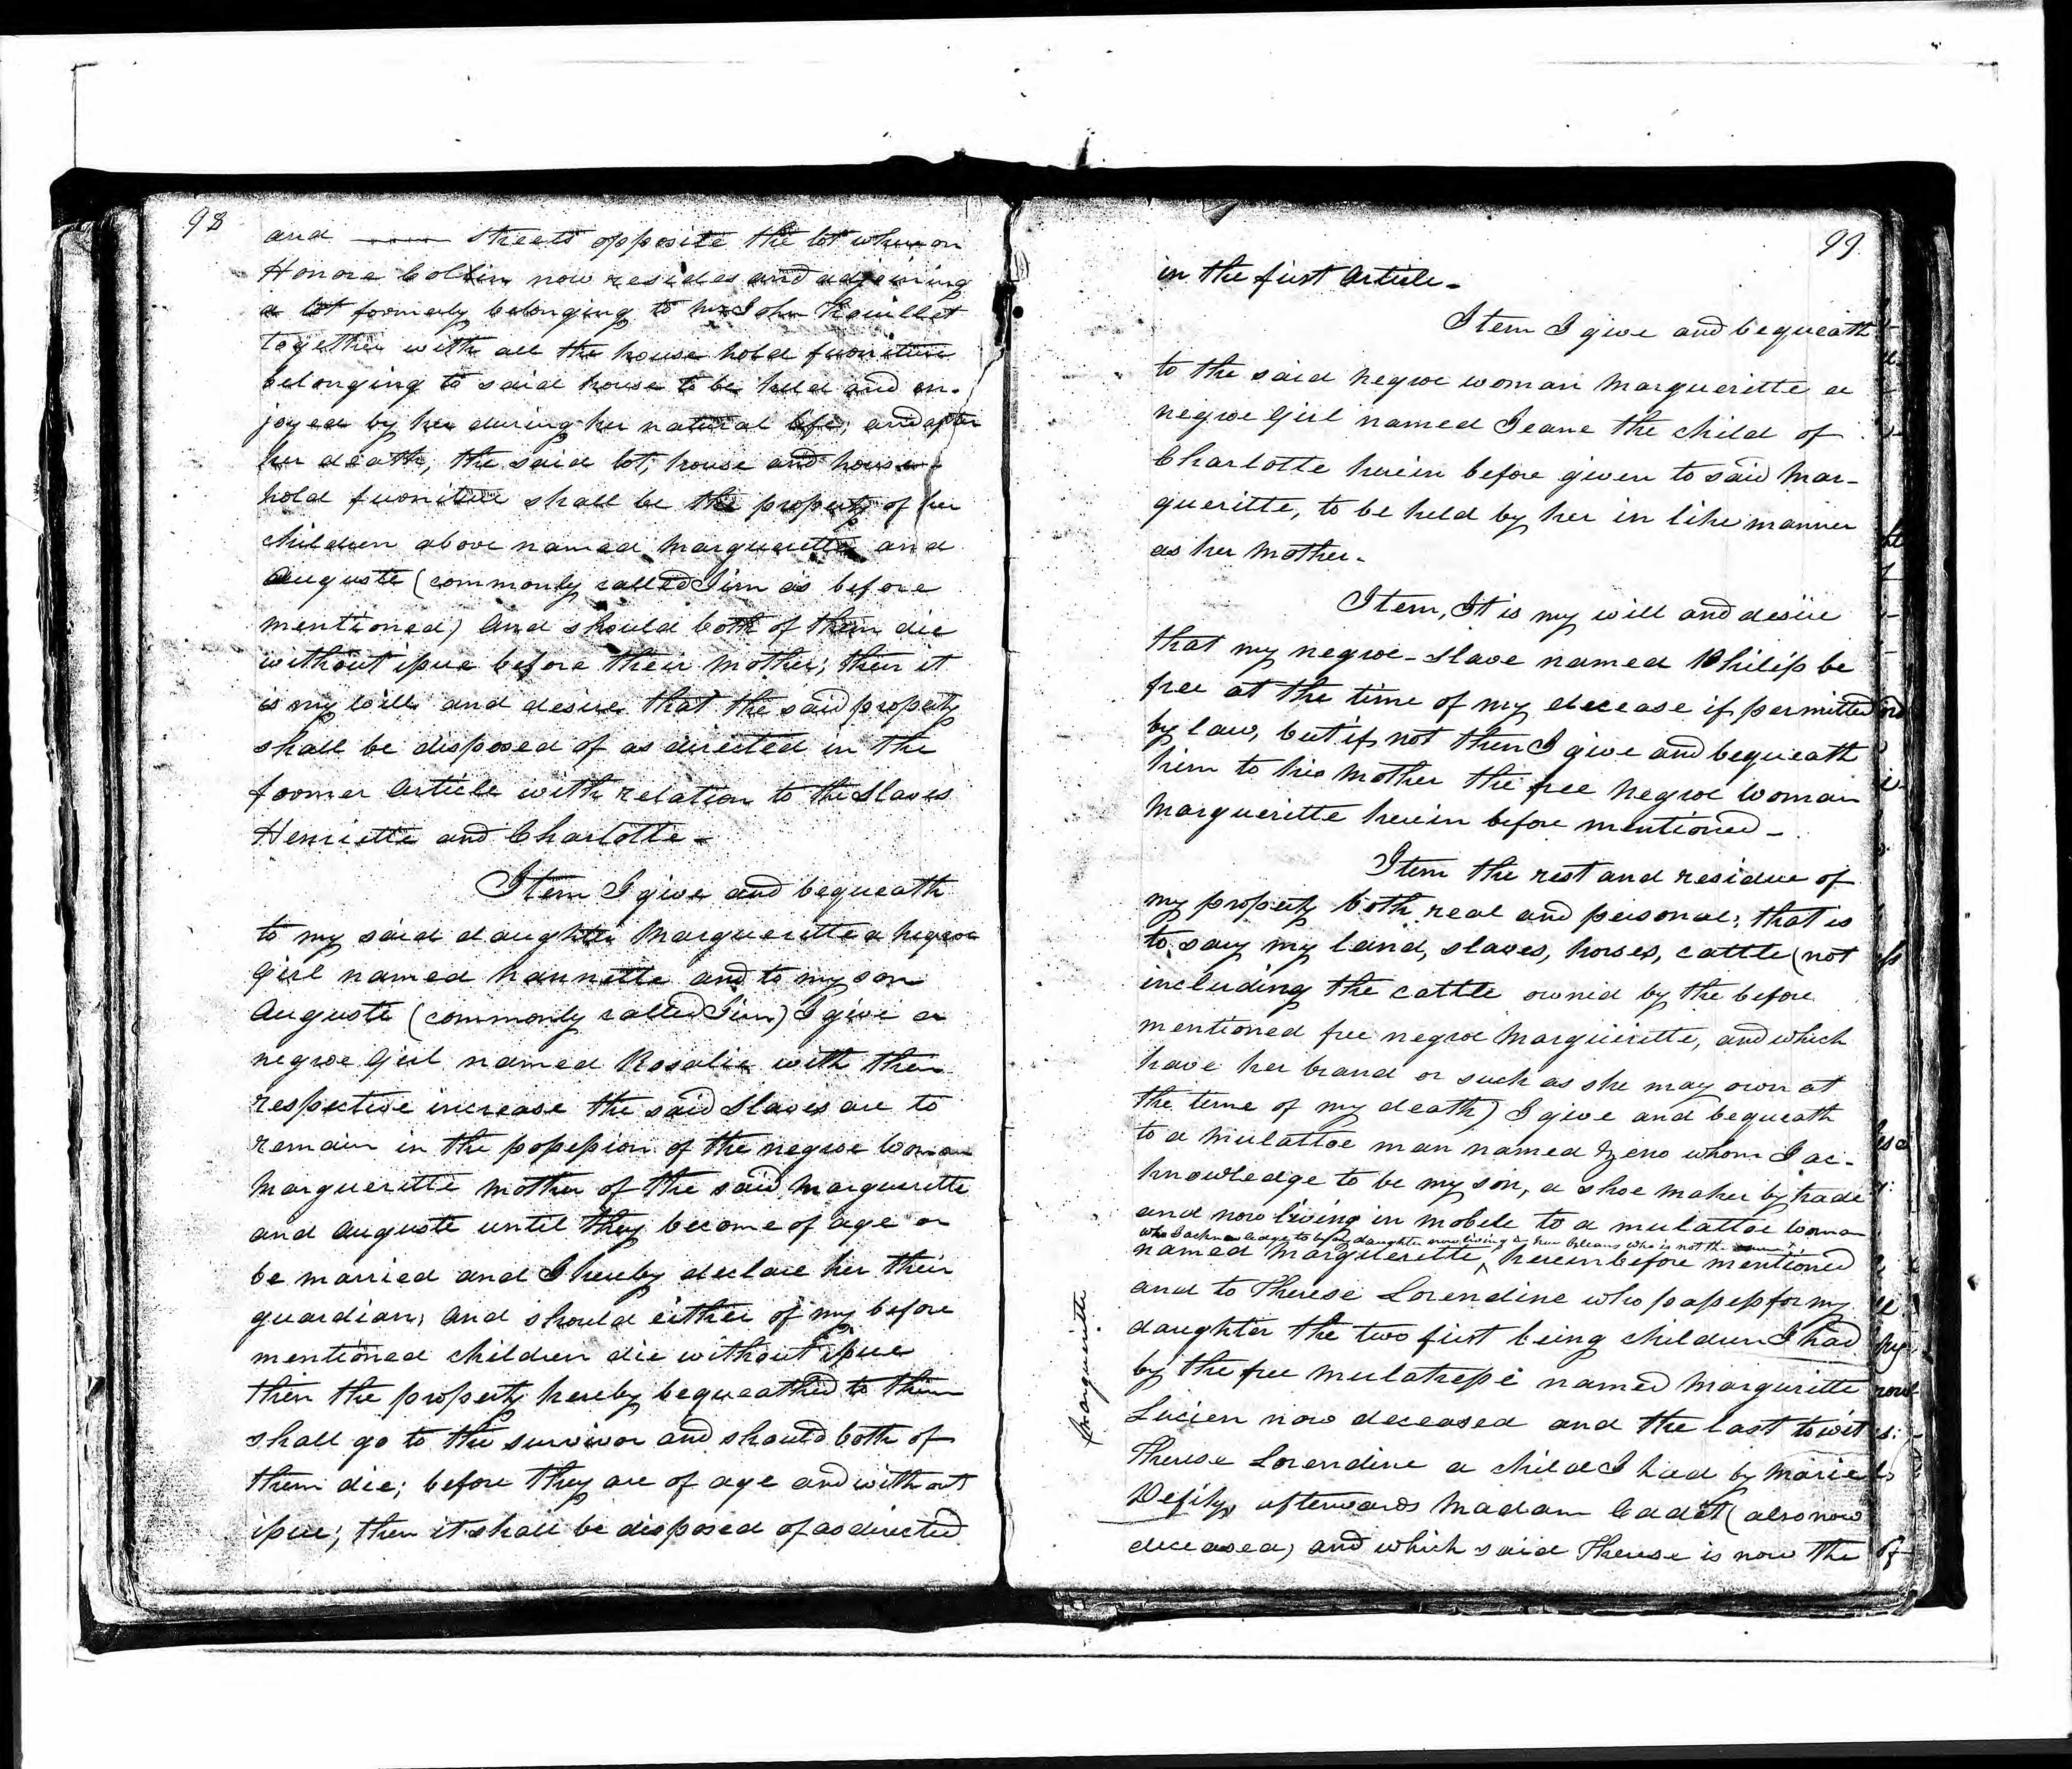 98
and ——— streets opposite the lot whereon
Honore Collin now resides and adjoining
a lot formerly belonging to Mr John
together with all the house hold furniture
belonging to said house to be held and en-
joyed by her during her natural life; and after
her death, the said lot, house and house-
hold furniture shall be the property of her
children above named Margueritte and
Auguste (commonly called Jim as before
mentioned) and should both of them die
without issue before their mother; then it
is my will and desire that the said property
shall be disposed of as directed in the
former article with relation to the slaves
Henriette and Charlotte -
Item I give and bequeath
to my said daughter Margueritte a negroe
girl named Nannette and to my son
Auguste (commonly called Jim) I give a
negroe girl named Rosalie with their
respective increase the said slaves are to
remain in the possession of the negroe woman
Margueritte mother of the said Marguerite
and Auguste until they become of age or
be married and I hereby declare her their
guardian, and should either of my before
mentioned children die without issue
then the property hereby bequeathed to them
shall go to the survivor and should both of
them die; before they are of age and without
issue; then it shall be disposed of as directed
99
in the first article -
Item I give and bequeath
to the said negroe woman Margueritte a
negroe girl named Jeane the child of
Charlotte herein before given to said Mar-
gueritte, to be held by her in like manner
as her mother.
Item, It is my will and desire
that my negroe-slave named Philip be
free at the time of my decease if permitted
by law, but if not then I give and bequeath
him to his mother the free negroe woman
Margueritte herein before mentioned -
Item the rest and residue of
my property both real and personal; that is
to say my land, slaves, horses, cattle (not
including the cattle owned by the before
mentioned free negroe Margueritte, and which
have her brand or such as she may own at
the time of my death) I give and bequeath
to a mulattoe man named Zeno whom I ac-
knowledge to be my son, a shoe maker by trade
and now living in Mobile to a mulattoe woman
who I acknowledge to be my daughter now living in New Orleans who is not the
named Margueritte, herein before mentioned
and to Therese Lorendine who passes for my
daughter the two first being children I had
by the free mulatresse named Margueritte
Lucien now deceased and the last to wit
Therese Lorendine a child I had by Marie
afterwards Madam Cadet (also now
deceased) and which said Therese is now the
Margueritte